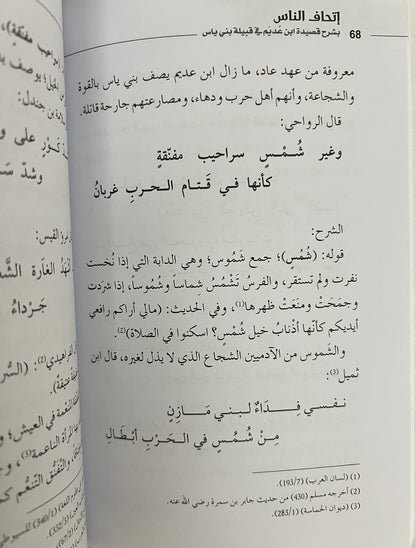 إتحاف الناس
بشرح قصيدة ابن عُديّم في قبيلة بني ياس
68
معروفة من عهد عاد، ما زال ابن عديم يصف بني ياس بالقوة
والشجاعة، وأنهم أهل حرب ودهاء، ومصارعتهم جارحة قاتلة.
قال الرواحي:
وغير شُمْسٍ سراحيب مفنّقةٍ
كأنها في قَتام الحربِ غربانُ
الشرح:
قوله: (شُمْسٍ)؛ جمع شَمُوس؛ وهي الدابة التي إذا نُخست
نفرت ولم تستقر، والفرسُ تَشْمُسُ شماساً وشُموساً، إذا شرَدت
وجمَحَتْ ومنَعَتْ ظهرها(1)، وفي الحديث: (مالي أراكم رافعي
أيديكم كأنّها أذْنابُ خيل شُمْسٍ؟ اسكنوا في الصلاة)(2).
والشَموس من الآدميين الشجاع الذي لا يذل لغيره، قال ابن
ثميل(3):
نفسي فِداءٌ لبني مَازِنٍ
مِنْ شُمُسٍ في الحَرْبِ أبْطَالِ
(1) (لسان العرب) (193/7).
(2) أخرجه مسلم (430) من حديث جابر بن سمرة رضي الله عنه.
(3) (ديوان الحماسة) (283/1).